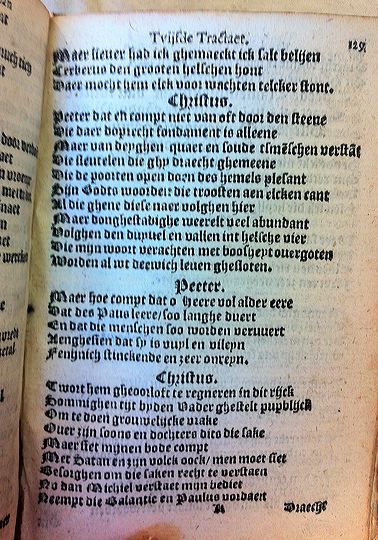 Tvijfde Tractaet. 129.
Maer liever had ick ghemaeckt ick salt belijen
Cerberus den grooten helschen hont
Daer mocht hem elck voor wachten telcker stont.
Christus.
Peeter dat en compt niet van oft door den steene
Die daer doprecht fondament is alleene
Maer van deyghen quaet en soude tsmēschen verstāt
Die sleutelen die ghy draecht ghemeene
Die de poorten open doen des hemels plesant
Sijn Godts woorden die troosten aen elcken cant
Al die ghene diese naer volghen hier
Maer donghestadighe weerelt veel abundant
Volghen den duyvel en vallen int helsche vier
Die mijn woort verachten met boosheyt overgoten
Worden al wt deewich leven ghesloten.
Peeter.
Maer hoe compt dat o Heere vol alder eere
Dat des Paus leere/soo langhe duert
En dat die menschen soo worden vervuert
Aenghesien dat sy is vuyl en vileyn
Fenijnich stinckende en zeer onreyn.
Christus.
Twort hem gheoorloft te regneren in dit rijck
Sommighen tijt byden Vader ghestelt publijck
Om te doen grouwelijcke wrake
Over zijn soons en dochters dits die sake
Maer siet mijnen bode compt
Met Satan en zijn volck oock/men moet siet
Besorghen om die saken recht te verstaen
No dan Michiel verstaet mijn bediet
Neempt die Balantie en Paulus vordaert
R Draecht